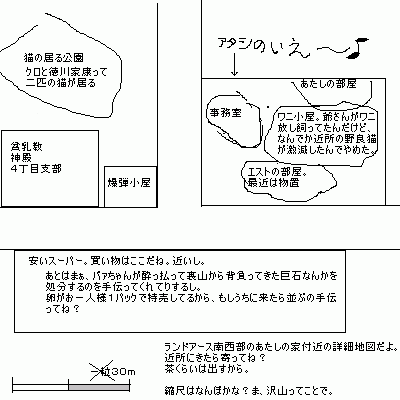 猫の居る公園
クロと徳川家康って
二匹の猫が居る
アタシのいえ～♪
あたしの部屋
事務室
ワニ小屋。爺さんがワニ
放し飼ってたんだけど、
なんでか近所の野良猫
が激減したんでやめた。
エストの部屋。
最近は物置
貧乳教
神殿
4丁目支部
爆弾小屋
安いスーパー。買い物はここだね。近いし。
あとはまぁ、バァちゃんが酔っ払って裏山から背負ってきた巨石なんかを
処分するのを手伝ってくれてりするし。
卵がお一人様1パックで特売してるから、もしうちに来たら並ぶの手伝
ってね?
ランドアース南西部のあたしの家付近の詳細地図だよ。
近所にきたら寄ってね?
茶くらいは出すから。
縮尺はなんぼかな?ま、沢山ってことで。
一粒30m